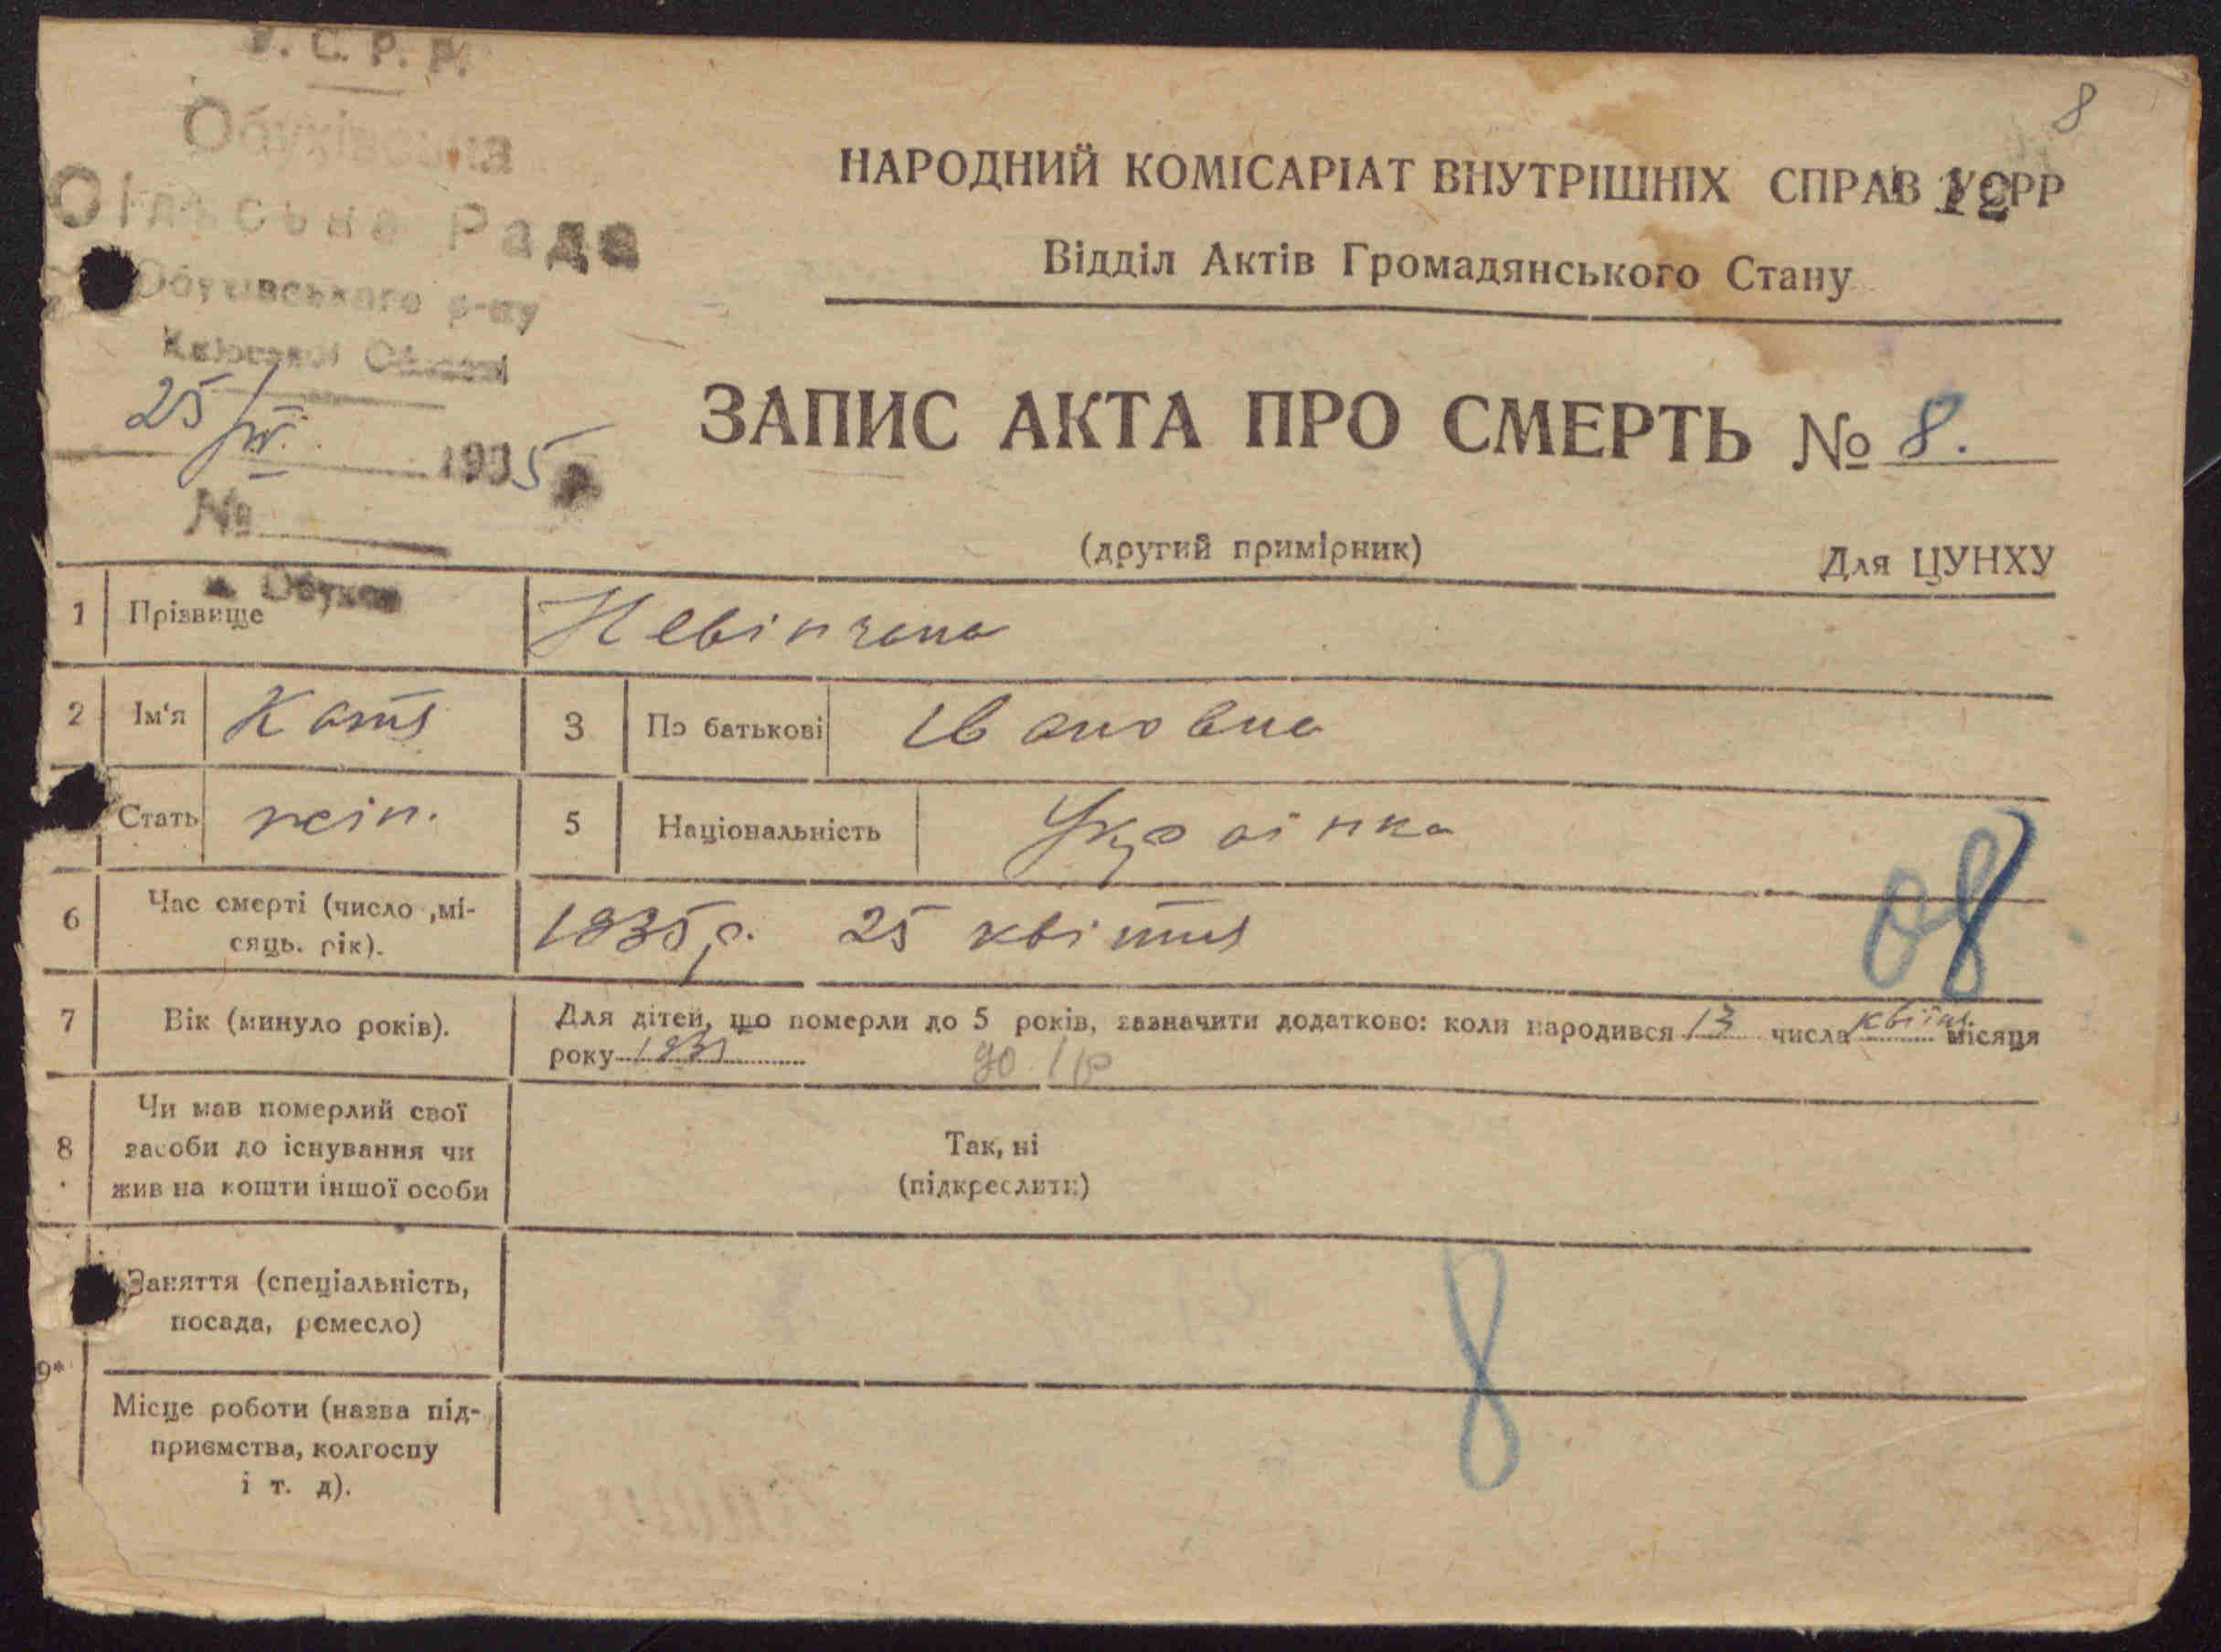 У. С. Р. Р.
Обухівська
Сільська Рада
Обухівського р-ну
Київської Області
25/IV. 1935 р.
№
м. Обухів
8
НАРОДНИЙ КОМІСАРІАТ ВНУТРІШНІХ СПРАВ УСРР
12
Відділ Актів Громадянського Стану
ЗАПИС АКТА ПРО СМЕРТЬ № 8.
(другий примірник) Для ЦУНХУ
1 Прізвище Невінчана
2 Ім'я Катя 3 По батькові Івановна
Стать жін. 5 Національність Українка
6 Час смерті (число ,мі-
сяць. рік). 1935 р. 25 квітня
08
7 Вік (минуло років). Для дітей, що померли до 5 років, зазначити додатково: коли народився 13 числа квітня місяця
року
до 1 р
8 Чи мав померлий свої
засоби до існування чи
жив на кошти іншої особи
Так, ні
(підкреслити)
Заняття (спеціальність,
посада, ремесло)
8
9*
Місце роботи (назва під-
приємства, колгоспу
і т. д).